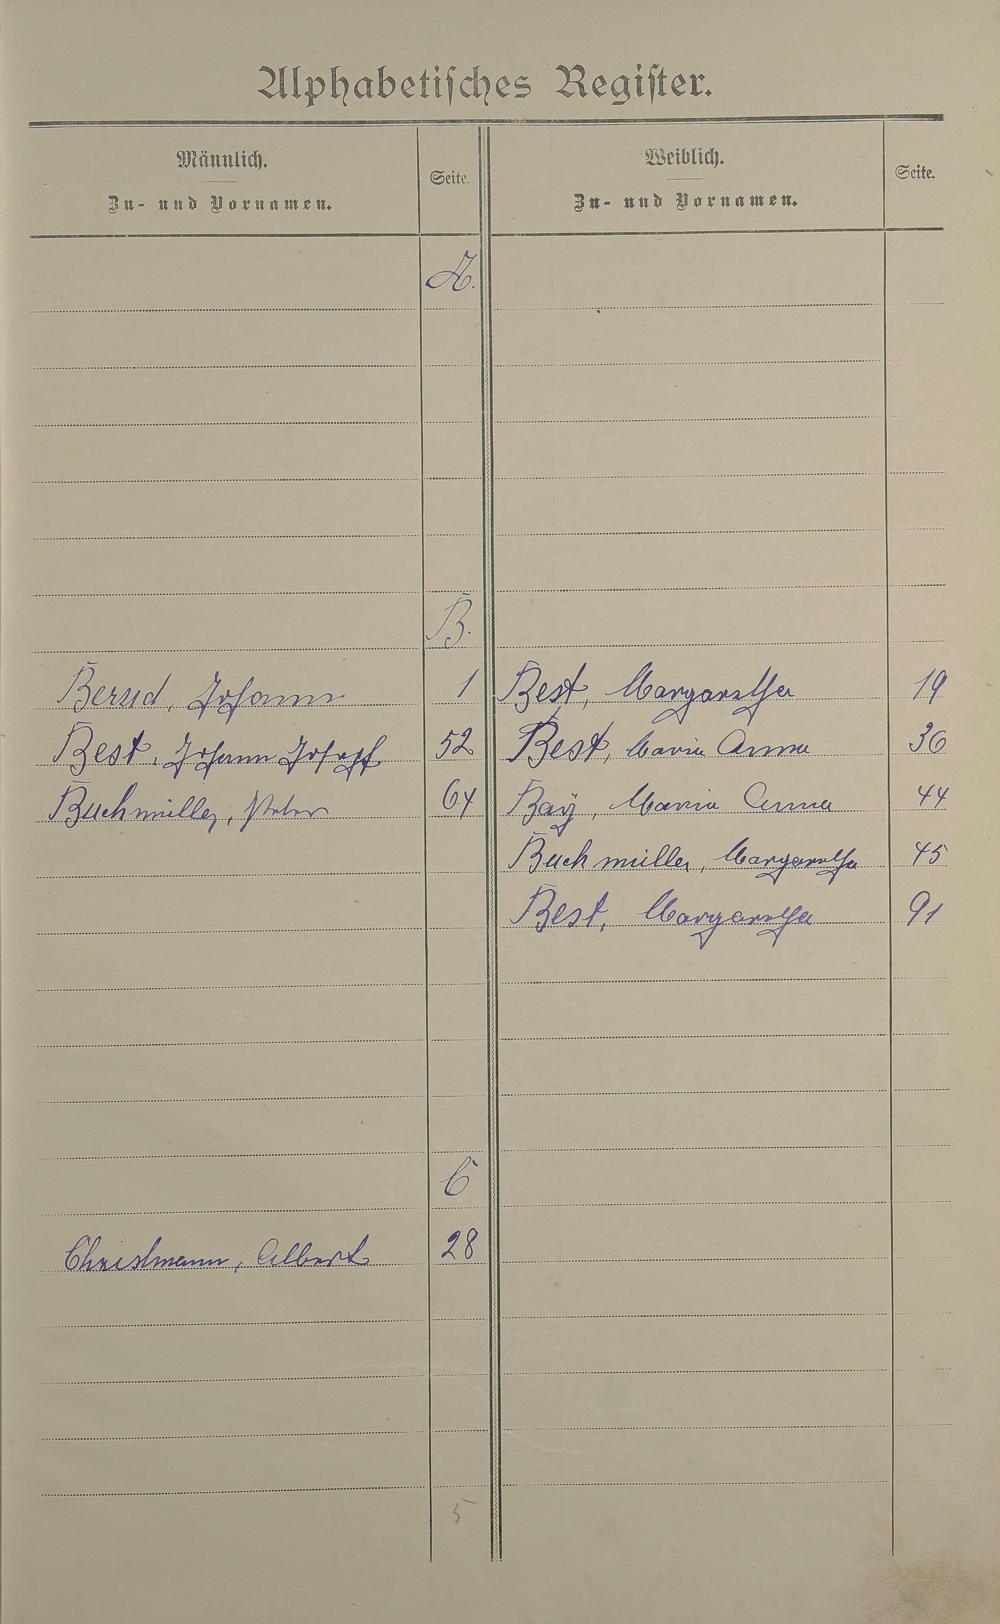 Alphabetisches Register.
Männlich. Weiblich.
Zu- und Vornamen. Seite. Zu- und Vornamen. Seite.
A.
B.
Bernd, Johann 1 Best, Margaretha 19
Best, Johann Josef 52 Best, Maria Anna 36
Buchmüller, Peter 64 Baÿ, Maria Anna 44
Buchmüller, Margaretha 45
Best, Margaretha 91
C
Christmann, Albert 28
5